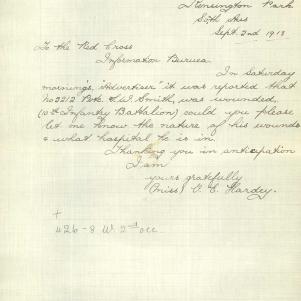 Kensington Park
Sth Aus
Sept. 2nd 1918
To the Red Cross
Information Bureau
In Saturday
morning's, "Advertiser" it was reported that
No 2212 Pte. S. W. Smith, was wounded,
(10th Infantry Battalion) could you please
let me know the nature of his wounds
& what hospital he is in.
Thanking you in anticipation
I am
yours gratefully
(miss) V. E. Hardey.
+
426-8 W. 2nd occ